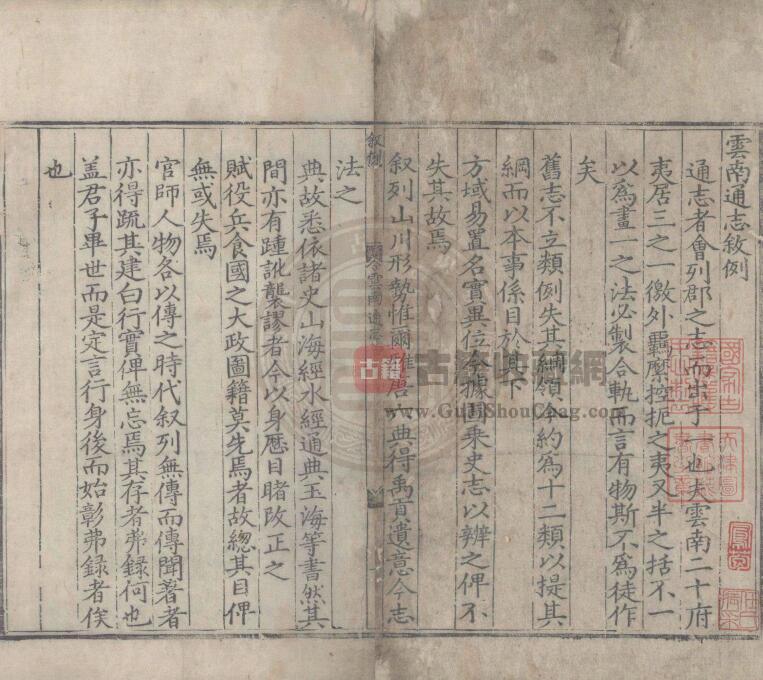 雲南通志敘例
通志者會列郡之志而出于一也夫雲南二十府
夷居三之一徼外羈縻控扼之夷又半之括不一
以為畫一之法必製合軌而言有物斯不為徒作
矣
舊志不立類例失其綱領今約為十二類以提其
綱而以本事係目於其下
方域易置名實異位今據圖乗史志以辨之俾不
失其故焉
叙列山川形勢惟爾雅唐六典得禹貢遺意今志
叙例
雲南通志
法之
典故悉依諸史山海經水經通典玉海等書然其
間亦有踵訛襲謬者今以身歷目睹改正之
賦役兵食國之大政圖籍莫先焉者故總其目俾
無或失焉
官師人物各以傳之時代叙列無傳而傳聞著者
亦得疏其建白行實俾無忘焉其存者弗録何也
盖君子畢世而是定言行身後而始彰弗録者俟
也
古籍
www.GuJiShouCang.com